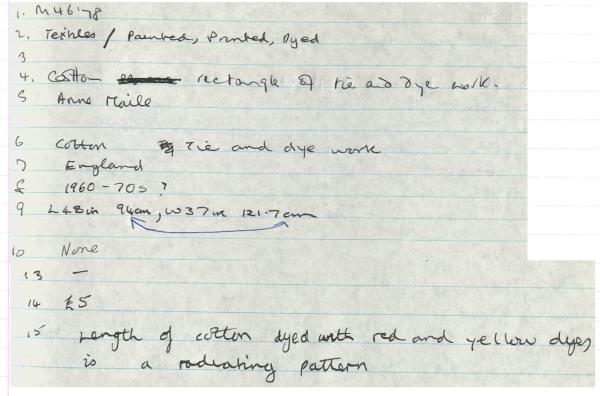 1. M46'78
2. Textiles / Painted, Printed, Dyed
3
4. Cotton rectangle of tie and dye work.
5 Anne Maile
6 Cotton Tie and dye work
7 England
8 1960-70s ?
9 L48in 94cm, W37in 121.7cm
10 None
13 —
14 £5
15 Length of cotton dyed with red and yellow dyes
is a radiating pattern